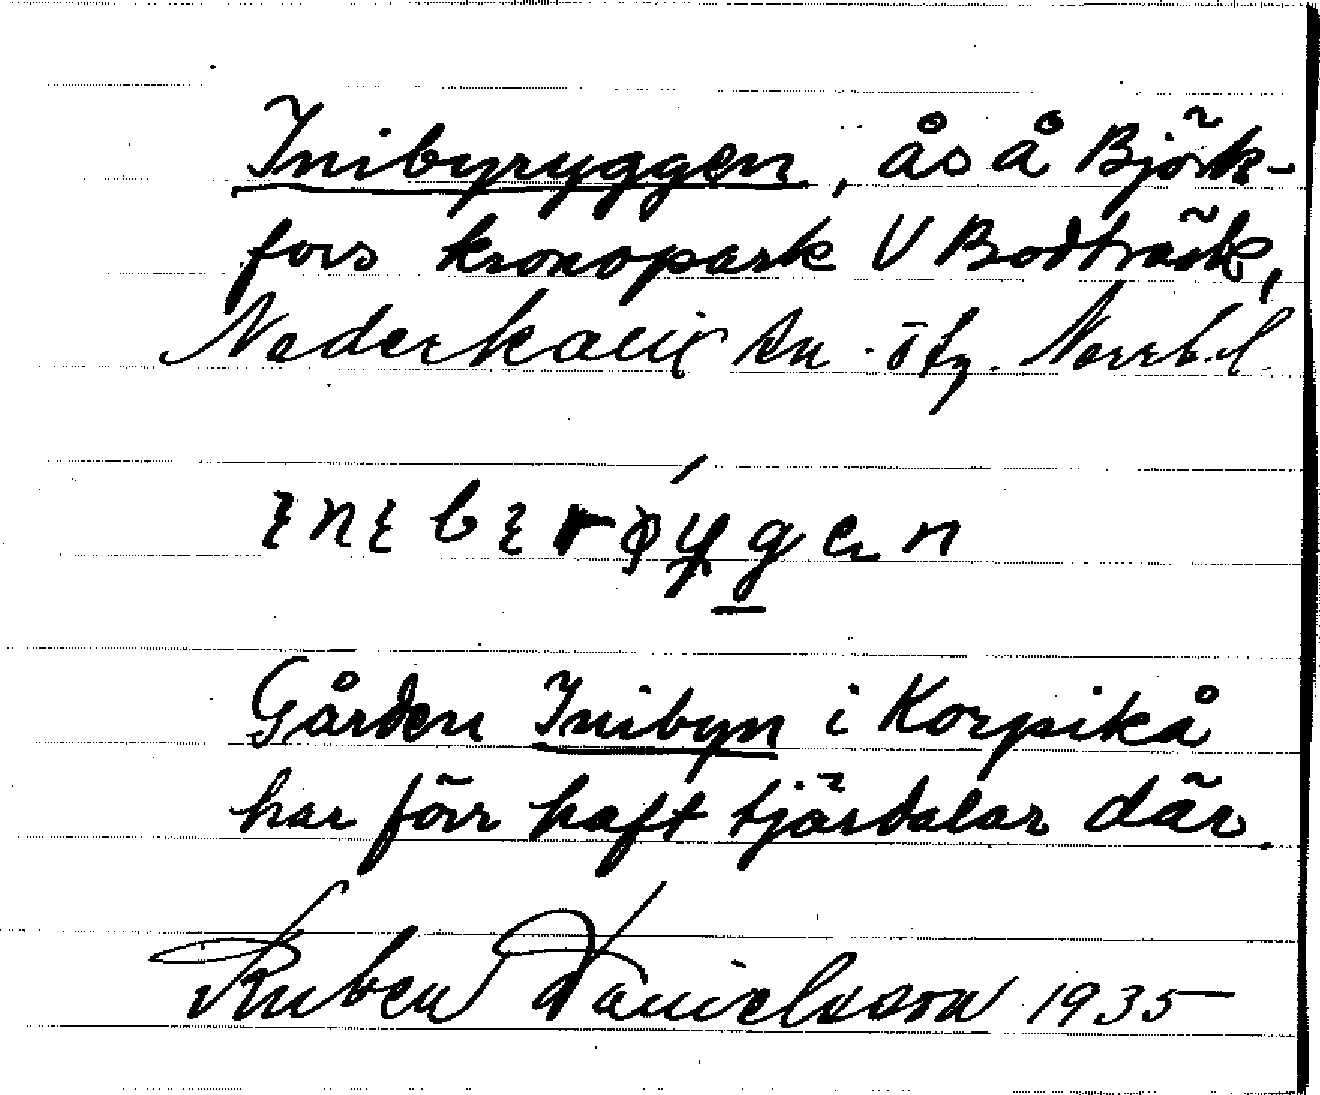 Inibyryggen, ås å Björk-
fors kronopark V Bodträsk,
Nederkalix sn. öfg. Norrb.l.
Gården Inibyn i Korpikå
har förr haft tjärdalar där.
Ruben Danielsson 1935